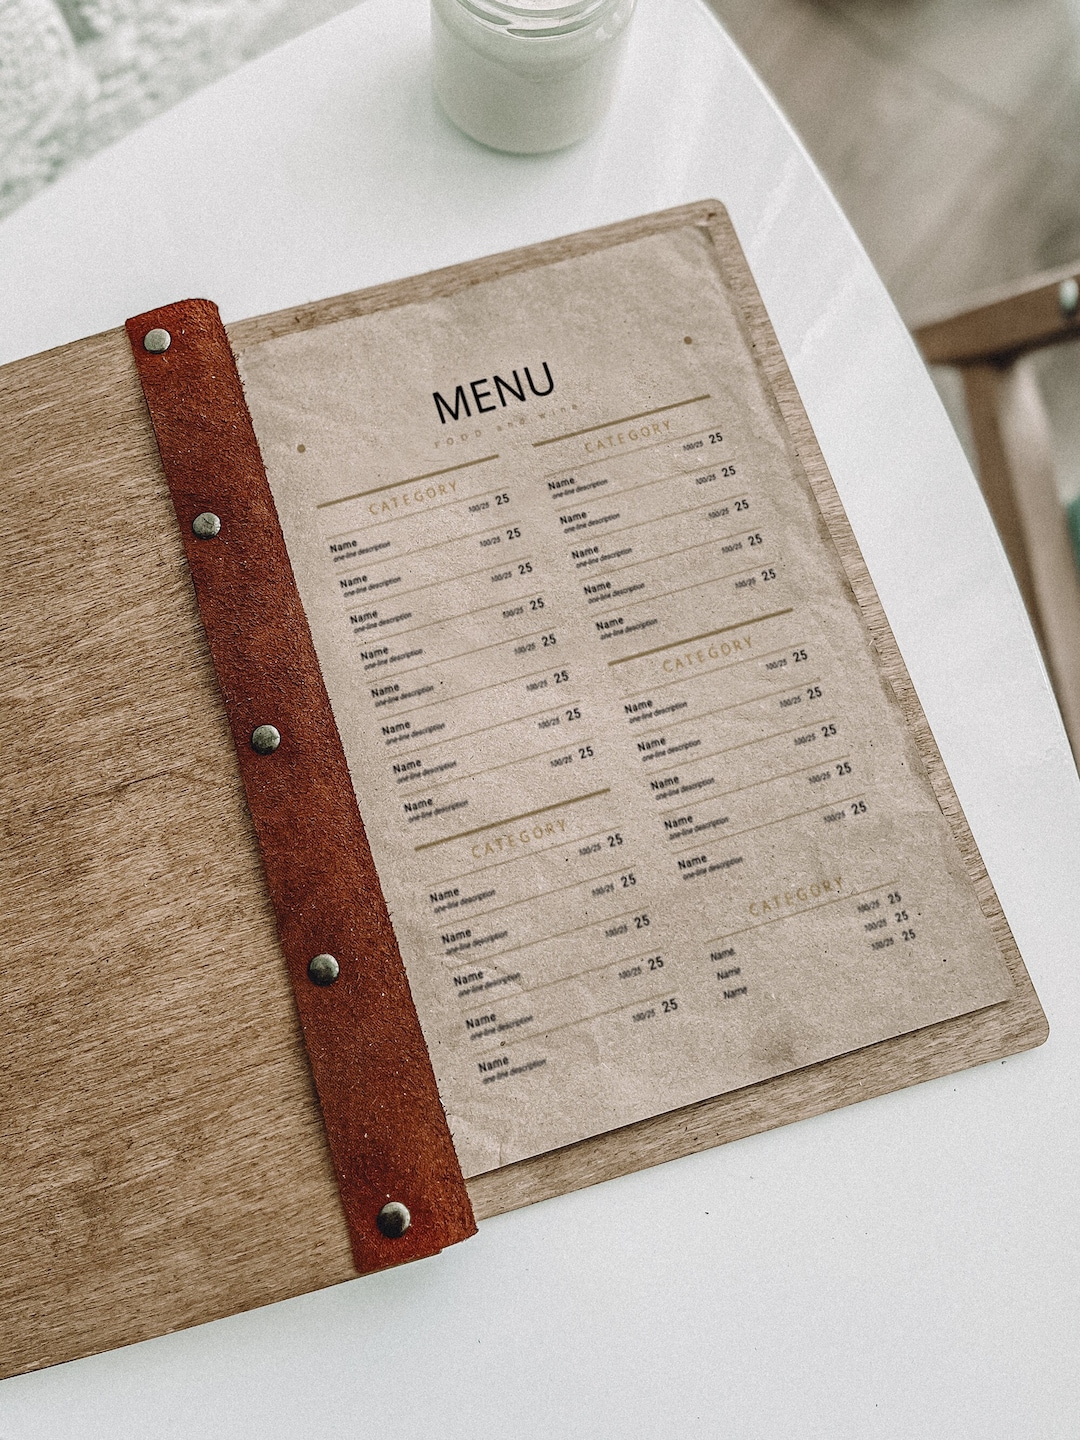 MENU
FOOD and wine
CATEGORY
Name 100/25 25
one-line description
Name 100/25 25
one-line description
Name 100/25 25
one-line description
Name 100/25 25
one-line description
Name 100/25 25
one-line description
Name 100/25 25
one-line description
Name 100/25 25
one-line description
Name 100/25 25
one-line description
CATEGORY
Name 100/25 25
one-line description
Name 100/25 25
one-line description
Name 100/25 25
one-line description
Name 100/25 25
one-line description
Name 100/25 25
one-line description
CATEGORY
Name 100/25 25
one-line description
Name 100/25 25
one-line description
Name 100/25 25
one-line description
Name 100/25 25
one-line description
Name 100/25 25
one-line description
CATEGORY
Name 100/25 25
one-line description
Name 100/25 25
one-line description
Name 100/25 25
one-line description
Name 100/25 25
one-line description
Name 100/25 25
one-line description
CATEGORY
Name 100/25 25
Name 100/25 25
Name 100/25 25